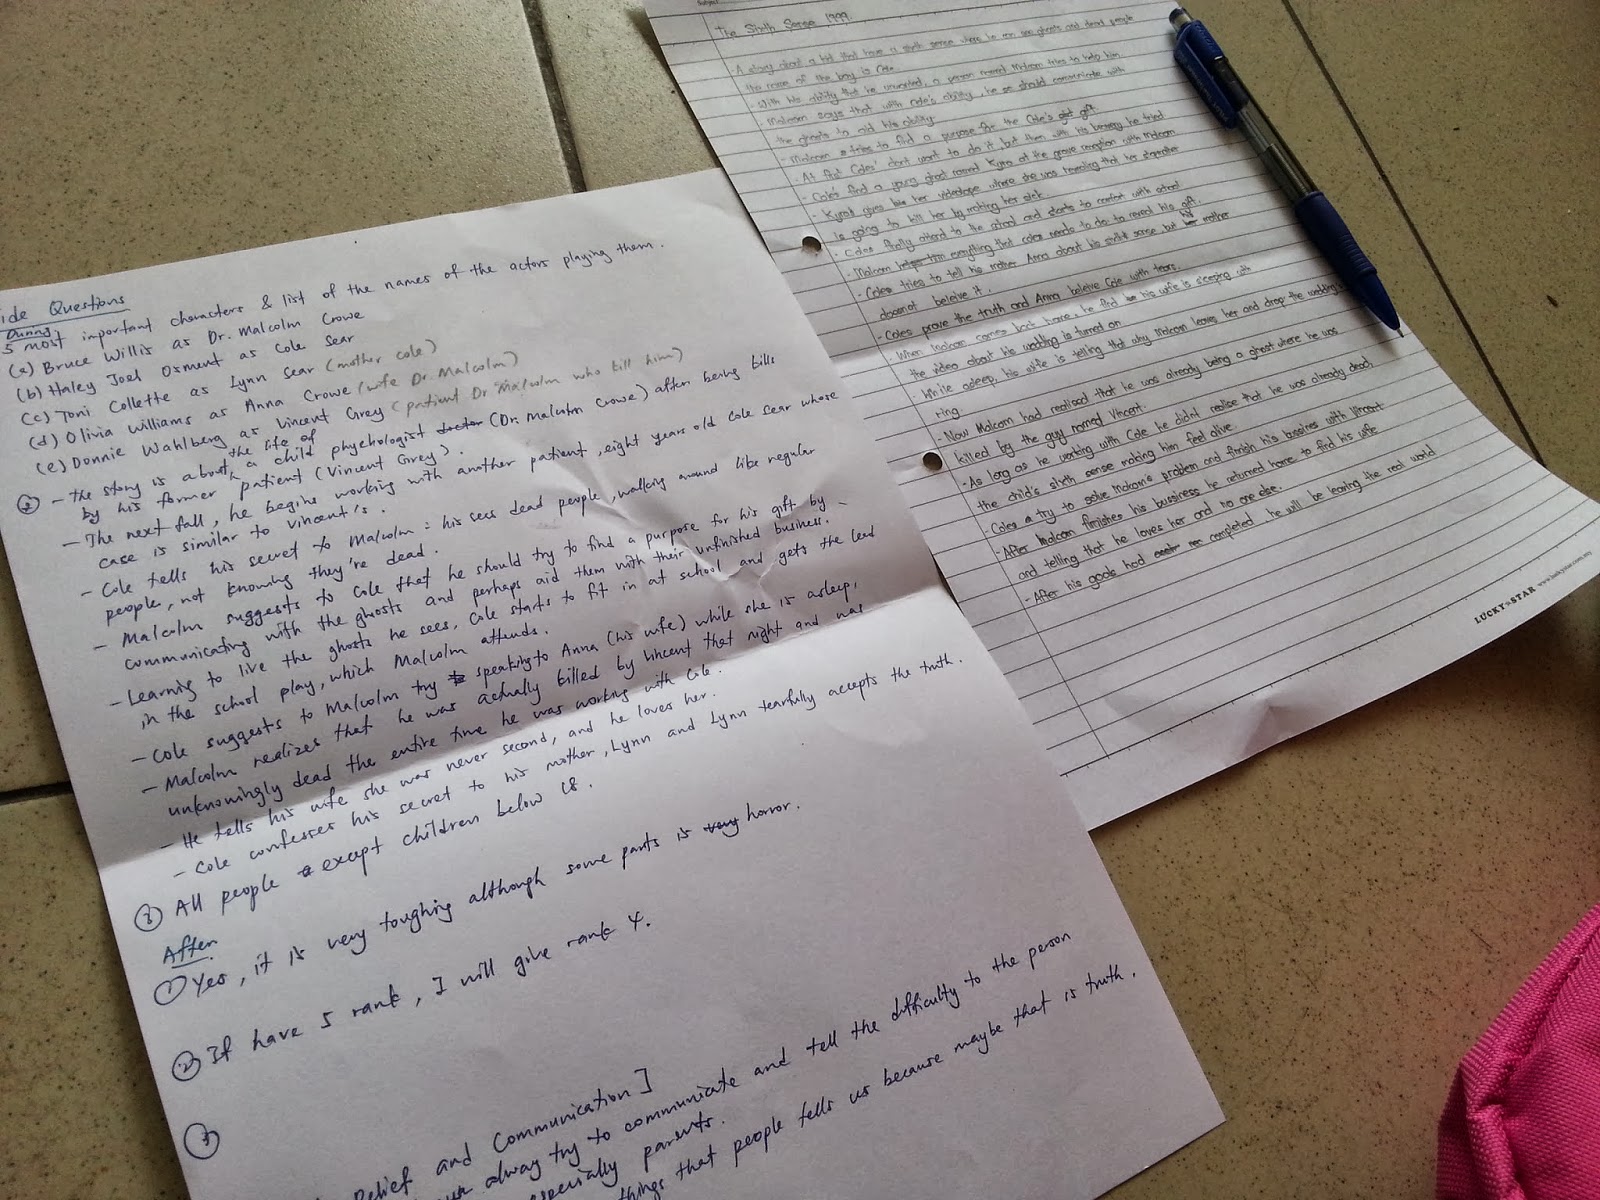 ide Questions
During
5 most important characters & list of the names of the actors playing them.
(a) Bruce Willis as Dr. Malcolm Crowe
(b) Haley Joel Osment as Cole Sear
(c) Toni Collette as Lynn Sear (mother cole)
(d) Olivia Williams as Anna Crowe (wife Dr. Malcolm)
(e) Donnie Wahlberg as Vincent Grey (patient Dr Malcolm who kill him)
② - The story is about the life of a child phychologist doctor (Dr. Malcolm Crowe) after being kills
by his former patient (Vincent Grey).
- The next fall, he begins working with another patient, eight years old Cole Sear whose
case is similar to Vincent's.
- Cole tells his secret to Malcolm : his sees dead people, walking around like regular
people, not knowing they're dead.
- Malcolm suggests to Cole that he should try to find a purpose for his gift by
communicating with the ghosts and perhaps aid them with their unfinished business.
- Learning to live the ghosts he sees, Cole starts to fit in at school and gets the lead
in the school play, which Malcolm attends.
- Cole suggests to Malcolm try to speaking to Anna (his wife) while she is asleep,
- Malcolm realizes that he was actually killed by Vincent that night and was
unknowingly dead the entire time he was working with Cole.
- He tells his wife she was never second, and he loves her.
- Cole confesses his secret to his mother, Lynn and Lynn tearfully accepts the truth.
③ All people except children below 18.
After
① Yes, it is very toughing although some parts is very horror.
② If have 5 rank, I will give rank 4.
③
Belief and Communication]
alway try to communicate and tell the difficulty to the person
especially parents.
things that people tells us because maybe that is truth.
Subject
The Sixth Sense 1999.
A story about a kid that have a sixth sense where he can see ghosts and dead people
the name of the boy is Cole
- With his ability that he unwanted, a person named Malcom tries to help him
- Malcom says that with cole's ability, he so should communicate with
the ghosts to aid his ability.
- Malcom tries to find a purpose for the Cole's gift
- At first Coles' don't want to do it, but then with his bravery he tried
- Coles find a young ghost named Kyra at the grave reception with Malcom
- Kyra gives her videotape where she was revealing that her stepmother
is going to kill her by making her sick
- Coles finally attend to the school and starts to comfort with school
- Malcom helps him everything that coles needs to do to reveal his gift.
- Coles tries to tell his mother Anna about his sixth sense but his mother
doesnot beleive it.
- Coles prove the truth and Anna beleive Cole with tears.
- When Malcom comes back home, he find his wife is sleeping with
the video about his wedding is turned on
- While asleep, his wife is telling that why Malcom leaves her and drop the wedding
ring
- Now Malcom had realised that he was already being a ghost where he was
killed by the guy named Vincent.
- As long as he working with Cole he didn't realise that he was already dead
the child's sixth sense making him feel alive.
- Coles try to solve Malcom's problem and finish his bussines with Vincent
- After Malcom finishes his bussiness he returned home to find his wife
and telling that he loves her and no one else.
- After his goals had completed, he will be leaving the real world
LUCKY STAR